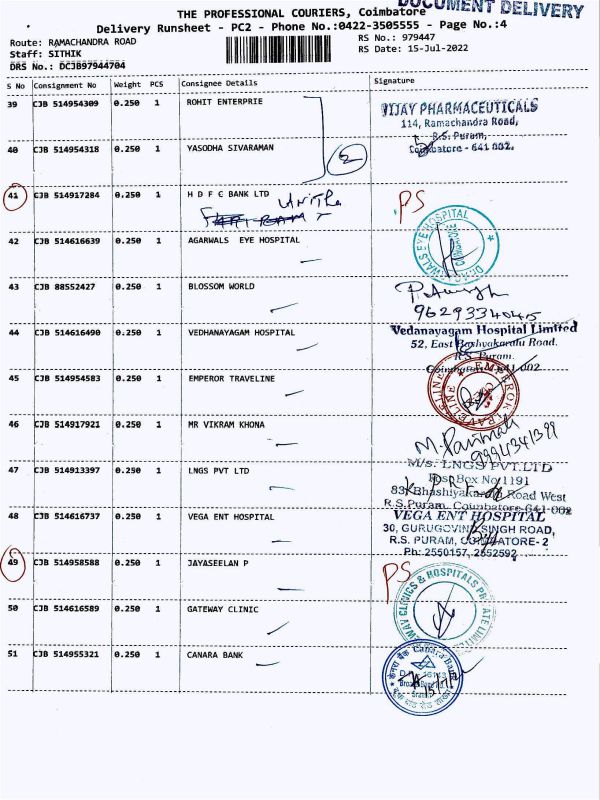 DOCUMENT DELIVERY
THE PROFESSIONAL COURIERS, Coimbatore
Delivery Runsheet - PC2 - Phone No.:0422-3505555 - Page No.:4
Route: RAMACHANDRA ROAD
RS No.: 979447
Staff: SITHIK
RS Date: 15-Jul-2022
DRS No.: DCJB97944704
S No Consignment No Weight PCS Consignee Details Signature
39 CJB 514954309 0.250 1 ROHIT ENTERPRIE
VIJAY PHARMACEUTICALS
114, Ramachandra Road,
R.S. Puram,
Coimbatore - 641 002.
40 CJB 514954318 0.250 1 YASODHA SIVARAMAN
2
41 CJB 514917284 0.250 1 H D F C BANK LTD
PS
42 CJB 514616639 0.250 1 AGARWALS EYE HOSPITAL
43 CJB 88552427 0.250 1 BLOSSOM WORLD
9629334045
44 CJB 514616490 0.250 1 VEDHANAYAGAM HOSPITAL
Vedanayagam Hospital Limited
52, East Bashyakaralu Road.
R.S. Puram.
Coimbatore - 641 002
45 CJB 514954583 0.250 1 EMPEROR TRAVELINE
EMPEROR TRAVELINE
46 CJB 514917921 0.250 1 MR VIKRAM KHONA
47 CJB 514913397 0.250 1 LNGS PVT LTD
M/s. LNGS PVT.LTD
Post Box No 1191
83, Bhashiyakaralu Road West
R.S.Puram, Coimbatore-641 002
48 CJB 514616737 0.250 1 VEGA ENT HOSPITAL
VEGA ENT HOSPITAL
30, GURUGOVIND SINGH ROAD,
R.S. PURAM, COIMBATORE- 2
Ph: 2550157, 2552592
49 CJB 514958588 0.250 1 JAYASEELAN P
PS
50 CJB 514616589 0.250 1 GATEWAY CLINIC
51 CJB 514955321 0.250 1 CANARA BANK
केनरा बैंक Canara Bank